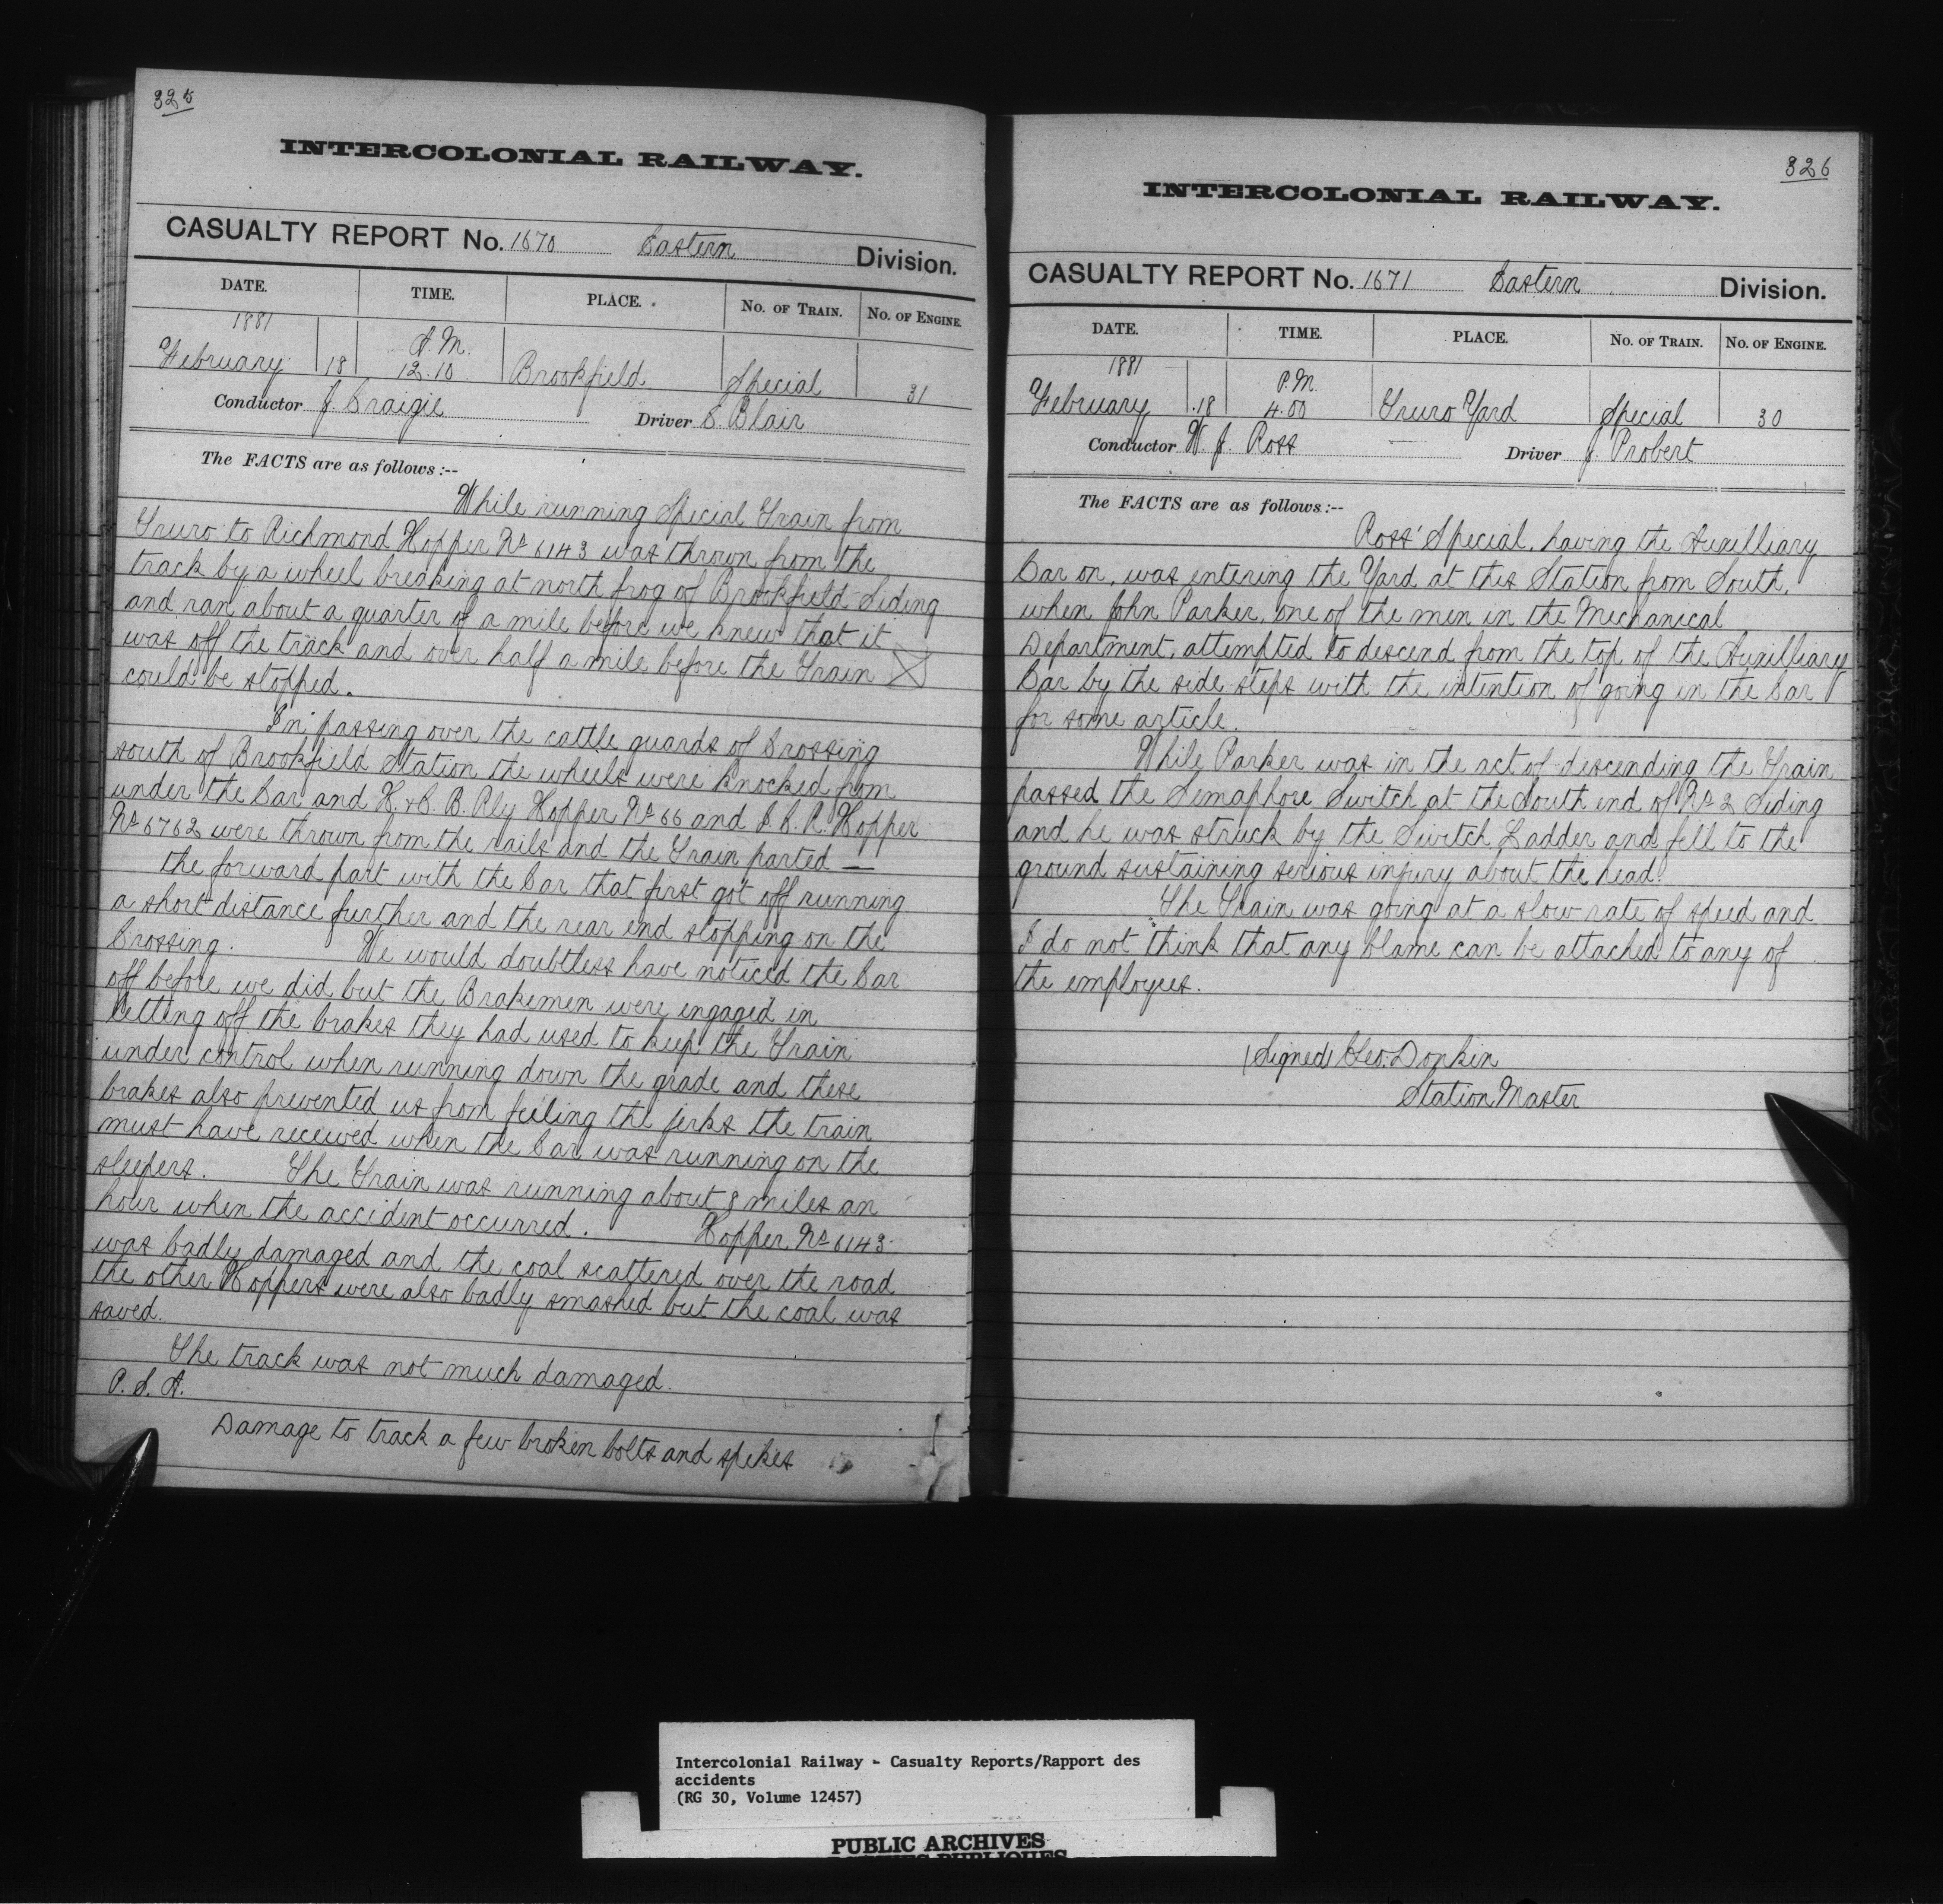 325
INTERCOLONIAL RAILWAY.
CASUALTY REPORT No. 1670 Eastern Division.
DATE. TIME. PLACE. No. OF TRAIN. No. OF ENGINE.
1881 A.M.
February 18 12.10 Brookfield Special 31
Conductor J. Craigie Driver C. Blair
The FACTS are as follows:--
While running Special Train from
Truro to Richmond Hopper No 6143 was thrown from the
track by a wheel breaking at north frog of Brookfield Siding
and ran about a quarter of a mile before we knew that it
was off the track and over half a mile before the Train
could be stopped.
In passing over the cattle guards of Crossing
south of Brookfield Station the wheels were knocked from
under the Car and H. & C. B. Rly Hopper No 66 and I. C. R. Hopper
No 6762 were thrown from the rails and the Train parted —
the forward part with the Car that first got off running
a short distance further and the rear end stopping on the
Crossing. We would doubtless have noticed the Car
off before we did but the Brakemen were engaged in
letting off the brakes they had used to keep the Train
under control when running down the grade and these
brakes also prevented us from feeling the jerks the train
must have received when the Car was running on the
sleepers. The Train was running about 8 miles an
hour when the accident occurred. Hopper No 6143
was badly damaged and the coal scattered over the road
the other Hoppers were also badly smashed but the coal was
saved.
The track was not much damaged.
P. S. A.
Damage to track a few broken bolts and spikes
326
INTERCOLONIAL RAILWAY.
CASUALTY REPORT No. 1671 Eastern Division.
DATE. TIME. PLACE. No. OF TRAIN. No. OF ENGINE.
1881 P.M.
February 18 4.00 Truro Yard Special 30
Conductor W. J. Ross Driver J. Probert
The FACTS are as follows:--
Ross' Special, having the Auxilliary
Car on, was entering the Yard at this Station from South,
when John Parker, one of the men in the Mechanical
Department, attempted to descend from the top of the Auxilliary
Car by the side steps with the intention of going in the Car
for some article.
While Parker was in the act of descending the Train
passed the Semaphore Switch at the South end of No 2 Siding
and he was struck by the Switch Ladder and fell to the
ground sustaining serious injury about the head.
The Train was going at a slow rate of speed and
I do not think that any blame can be attached to any of
the employees.
(Signed) Geo. Donkin
Station Master
Intercolonial Railway - Casualty Reports/Rapport des
accidents
(RG 30, Volume 12457)
PUBLIC ARCHIVES